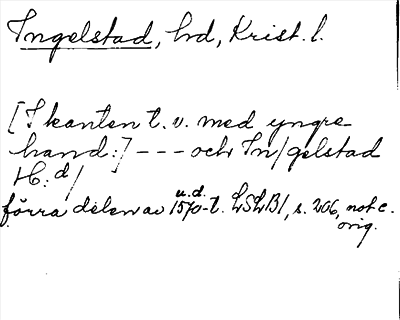 Ingelstad, hd, Krist. l.
[I kanten t. v. med yngre
hand:] --- och In/gelstad
H:d/
förra delen av 1570-t. LSLB1, s. 206, not c.
u.d.
orig.